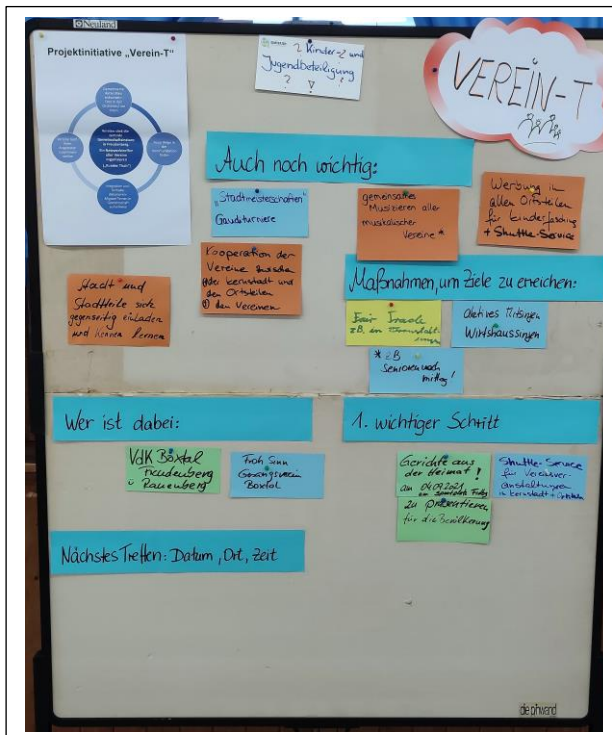 Neuland
Projektinitiative „Verein-T"
? Kinder-? und
Jugendbeteiligung
? ?
VEREIN-T
Auch noch wichtig:
„Stadtmeisterschaften"
Gaudeturniere
gemeinsames
Musizieren aller
musikalischer
Vereine *
Werbung in
allen Ortsteilen
für Kinderfasching
+ Shuttle-Service
Kooperation der
Vereine
der Kernstadt und
den Ortsteilen
den Vereinen
Stadt und
Stadtteile sich
gegenseitig einladen
und kennen lernen
Maßnahmen, um Ziele zu erreichen:
Fair Trade
z.B. in
aktives Mitsingen
Wirtshaussingen
* z.B
Seniorennach
mittag!
Wer ist dabei:
VdK Boxtal
Freudenberg
u Rauenberg
Froh Sinn
Gesangsverein
Boxtal
1. wichtiger Schritt
Gerichte aus
der Heimat !
am 04.09.2021
zu präsentieren
für die Bevölkerung
Shuttle-Service
für Vereinsver-
anstaltungen
in Kernstadt + Ortsteilen
Nächstes Treffen: Datum, Ort, Zeit
die pinwand